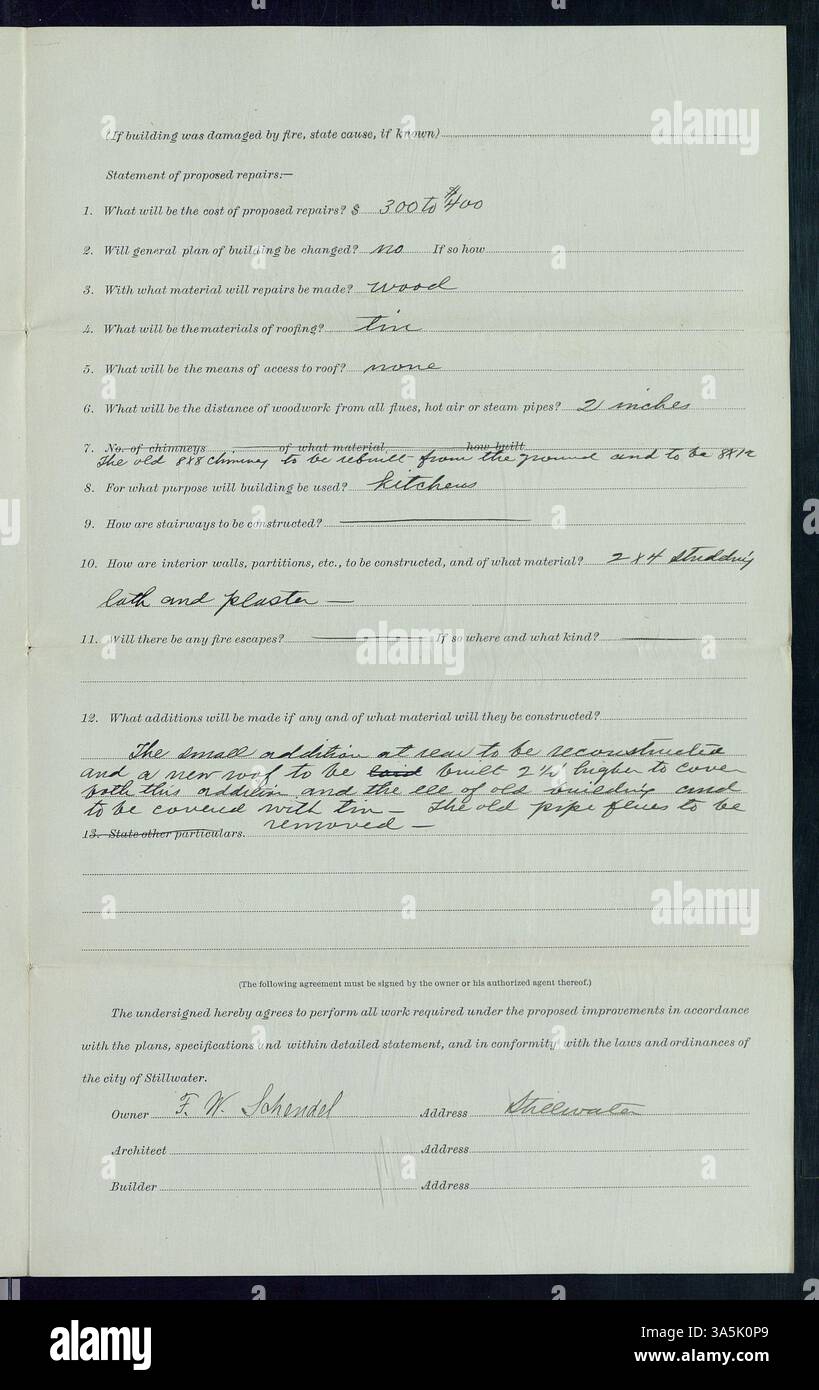 (If building was damaged by fire, state cause, if known)
Statement of proposed repairs:—
1. What will be the cost of proposed repairs? $ 300 to $400
2. Will general plan of building be changed? no If so how
3. With what material will repairs be made? wood
4. What will be the materials of roofing? tin
5. What will be the means of access to roof? none
6. What will be the distance of woodwork from all flues, hot air or steam pipes? 2 inches
7. No. of chimneys of what material how built
The old 8x8 chimney to be rebuilt from the ground and to be 8x12
8. For what purpose will building be used? kitchens
9. How are stairways to be constructed?
10. How are interior walls, partitions, etc., to be constructed, and of what material? 2 x 4 studding
lath and plaster —
11. Will there be any fire escapes? If so where and what kind?
12. What additions will be made if any and of what material will they be constructed?
The small addition at rear to be reconstructed
and a new roof to be built 2½' higher to cover
both this addition and the ell of old building and
to be covered with tin — The old pipe flues to be
13. State other particulars. removed —
(The following agreement must be signed by the owner or his authorized agent thereof.)
The undersigned hereby agrees to perform all work required under the proposed improvements in accordance
with the plans, specifications and within detailed statement, and in conformity with the laws and ordinances of
the city of Stillwater.
Owner F. W. Schendel Address Stillwater
Architect Address
Builder Address
alamy
alamy
alamy
alamy
Image ID: 3A5K0P9
www.alamy.com